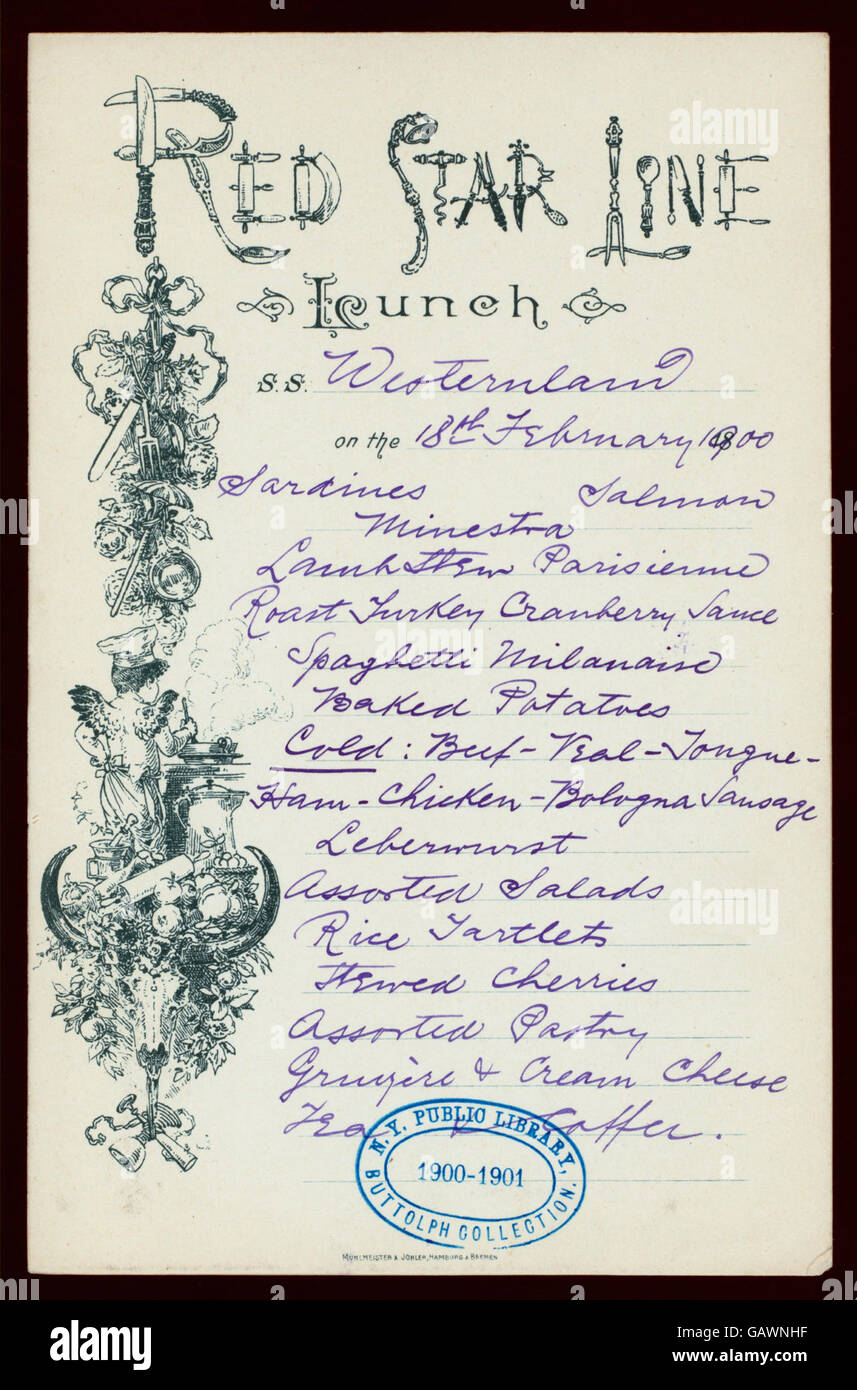 RED STAR LINE
Lunch
S.S. Westernland
on the 18th February 1900
Sardines Salmon
Minestra
Lamb Stew Parisienne
Roast Turkey Cranberry Sauce
Spaghetti Milanaise
Baked Potatoes
Cold: Beef - Veal - Tongue -
Ham - Chicken - Bologna Sausage
Leberwurst
Assorted Salads
Rice Tartlets
Stewed Cherries
Assorted Pastry
Gruyère & Cream Cheese
Tea & Coffee.
N.Y. PUBLIC LIBRARY,
1900-1901
BUTTOLPH COLLECTION.
MÜHLMEISTER & JOHLER, HAMBURG & BREMEN
alamy
Image ID: GAWNHF
www.alamy.com